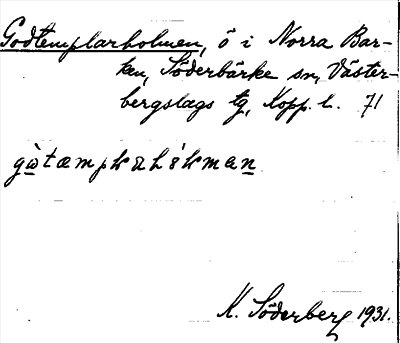 Godtemplarholmen, ö i Norra Bar-
ken, Söderbärke sn, Väster-
bergslags tg, Kopp. l. 71
K. Söderberg 1931.